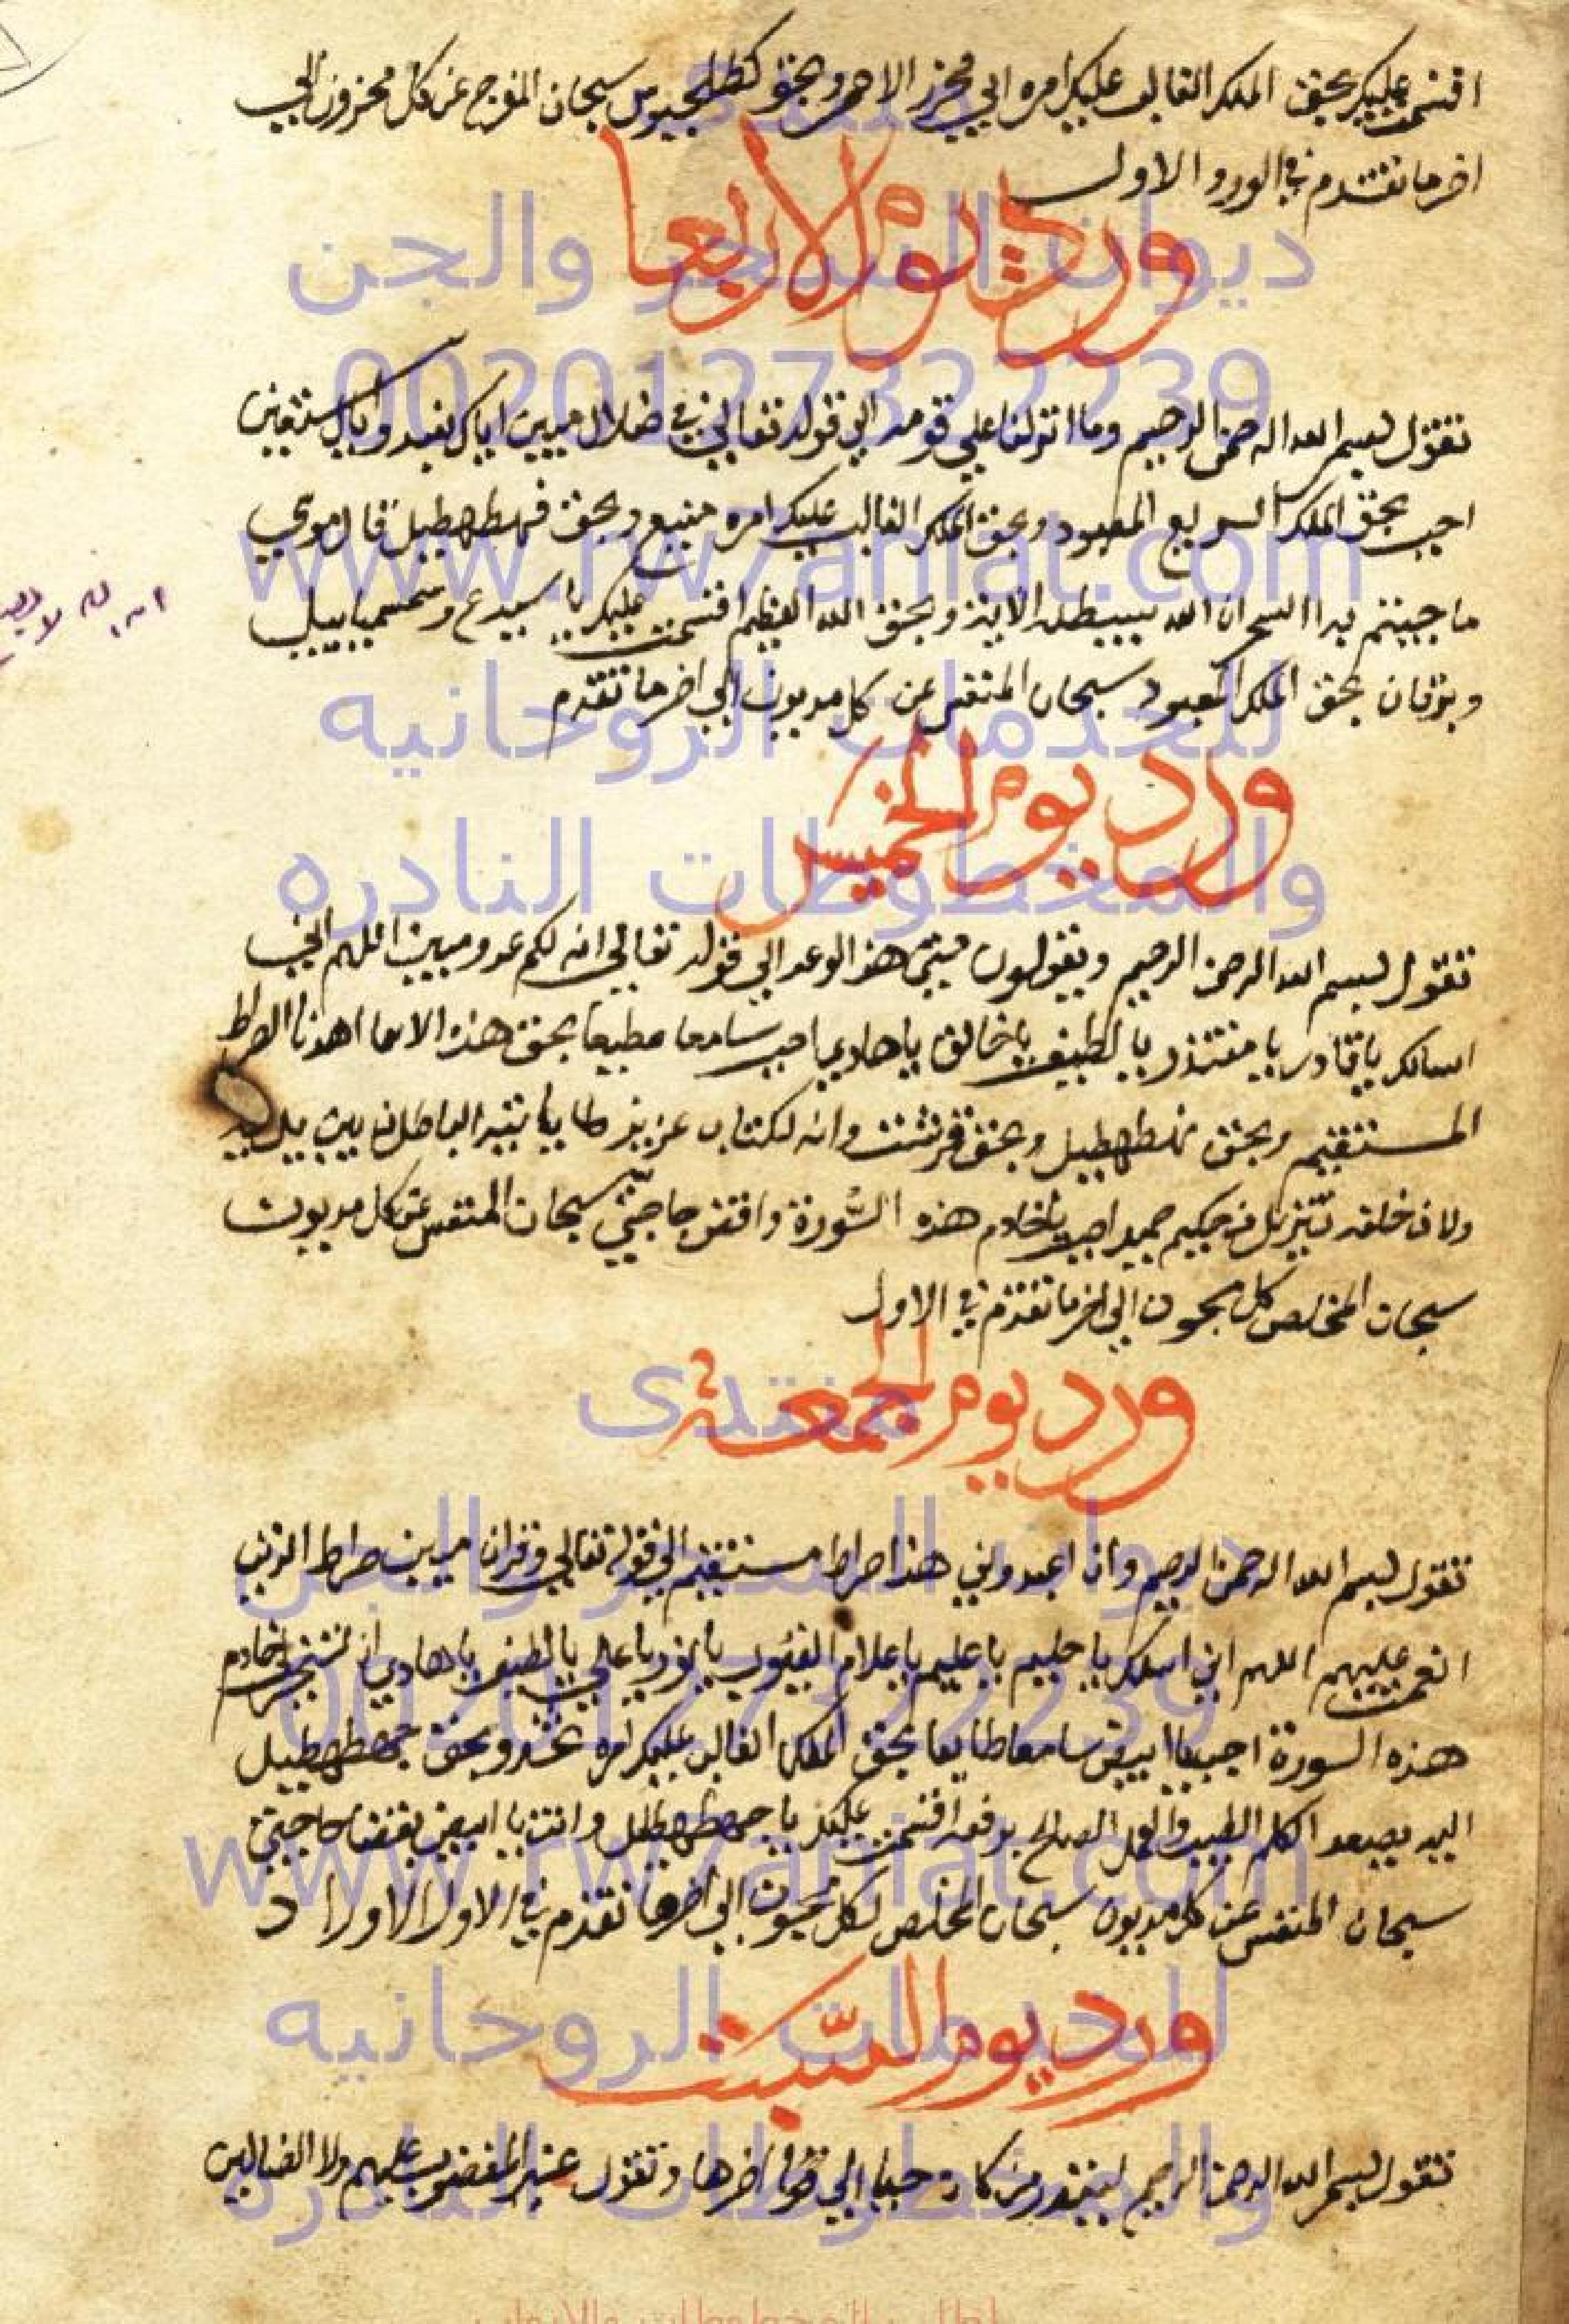 اقسمت عليك بحق الملك الغالب عليك امره ابي محرز الاحمر وبحق سبحان المفرج عن كل محزون الي
اخر ما تقدم في الورد الاول
ورد يوم الاربعا
تقول بسم الله الرحمن الرحيم وما انزلنا علي قومه الي قوله تعالي في ضلال مبين اياك نعبد واياك نستعين
اجب بحق الملك السريع المعبود وبحق الملك الغالب عليك امره وبحق قال موسي
ما جيتم به السحر ان الله سيبطله الاية وبحق الله العظيم اقسمت عليك يا
وبرقان بحق الملك المعبود سبحان المنفس عن كل مديون الي اخر ما تقدم
ورد يوم الخميس
تقول بسم الله الرحمن الرحيم ويقولون متي هذا الوعد الي قوله تعالي انه لكم عدو مبين اللهم اني
اسالك يا قادر يا مقتدر يا لطيف يا خالق يا هادي اجب سامعا مطيعا بحق هذه الاسما اهدنا الصراط
المستقيم وبحق وبحق قرشت وانه لكتاب عزيز لا ياتيه الباطل من بين يديه
ولا من خلفه تنزيل من حكيم حميد اجب يا خادم هذه السورة واقض حاجتي سبحان المنفس عن كل مديون
سبحان المخلص كل مسجون الي اخر ما تقدم في الاول
ورد يوم الجمعة
تقول بسم الله الرحمن الرحيم وان اعبدوني هذا صراط مستقيم الي قوله تعالي وقران مبين صراط الذين
انعمت عليهم اللهم اني اسلك يا حليم يا عليم يا علام الغيوب يا نور يا عالي يا لطيف يا هادي ان تسخر لي خادم
هذه السورة اجب يا ابيض سامعا طايعا بحق الملك الغالب عليك امره وبحق
اليه يصعد الكلم الطيب والعمل الصالح يرفعه اقسمت عليك يا وانت يا ابيض بقضا حاجتي
سبحان المنفس عن كل مديون سبحان المخلص لكل مسجون الي اخر ما تقدم في الاول الاوراد
ورد يوم السبت
تقول بسم الله الرحمن الرحيم لينذر من كان حيا الي اخرها وتقول غير المغضوب عليهم ولا الضالين
منتدى
ديوان السحر والجن
00201273222239
www.rw7aniat.com
للخدمات الروحانيه
والمخطوطات النادره
منتدى
ديوان السحر والجن
00201273222239
www.rw7aniat.com
للخدمات الروحانيه
والمخطوطات النادره